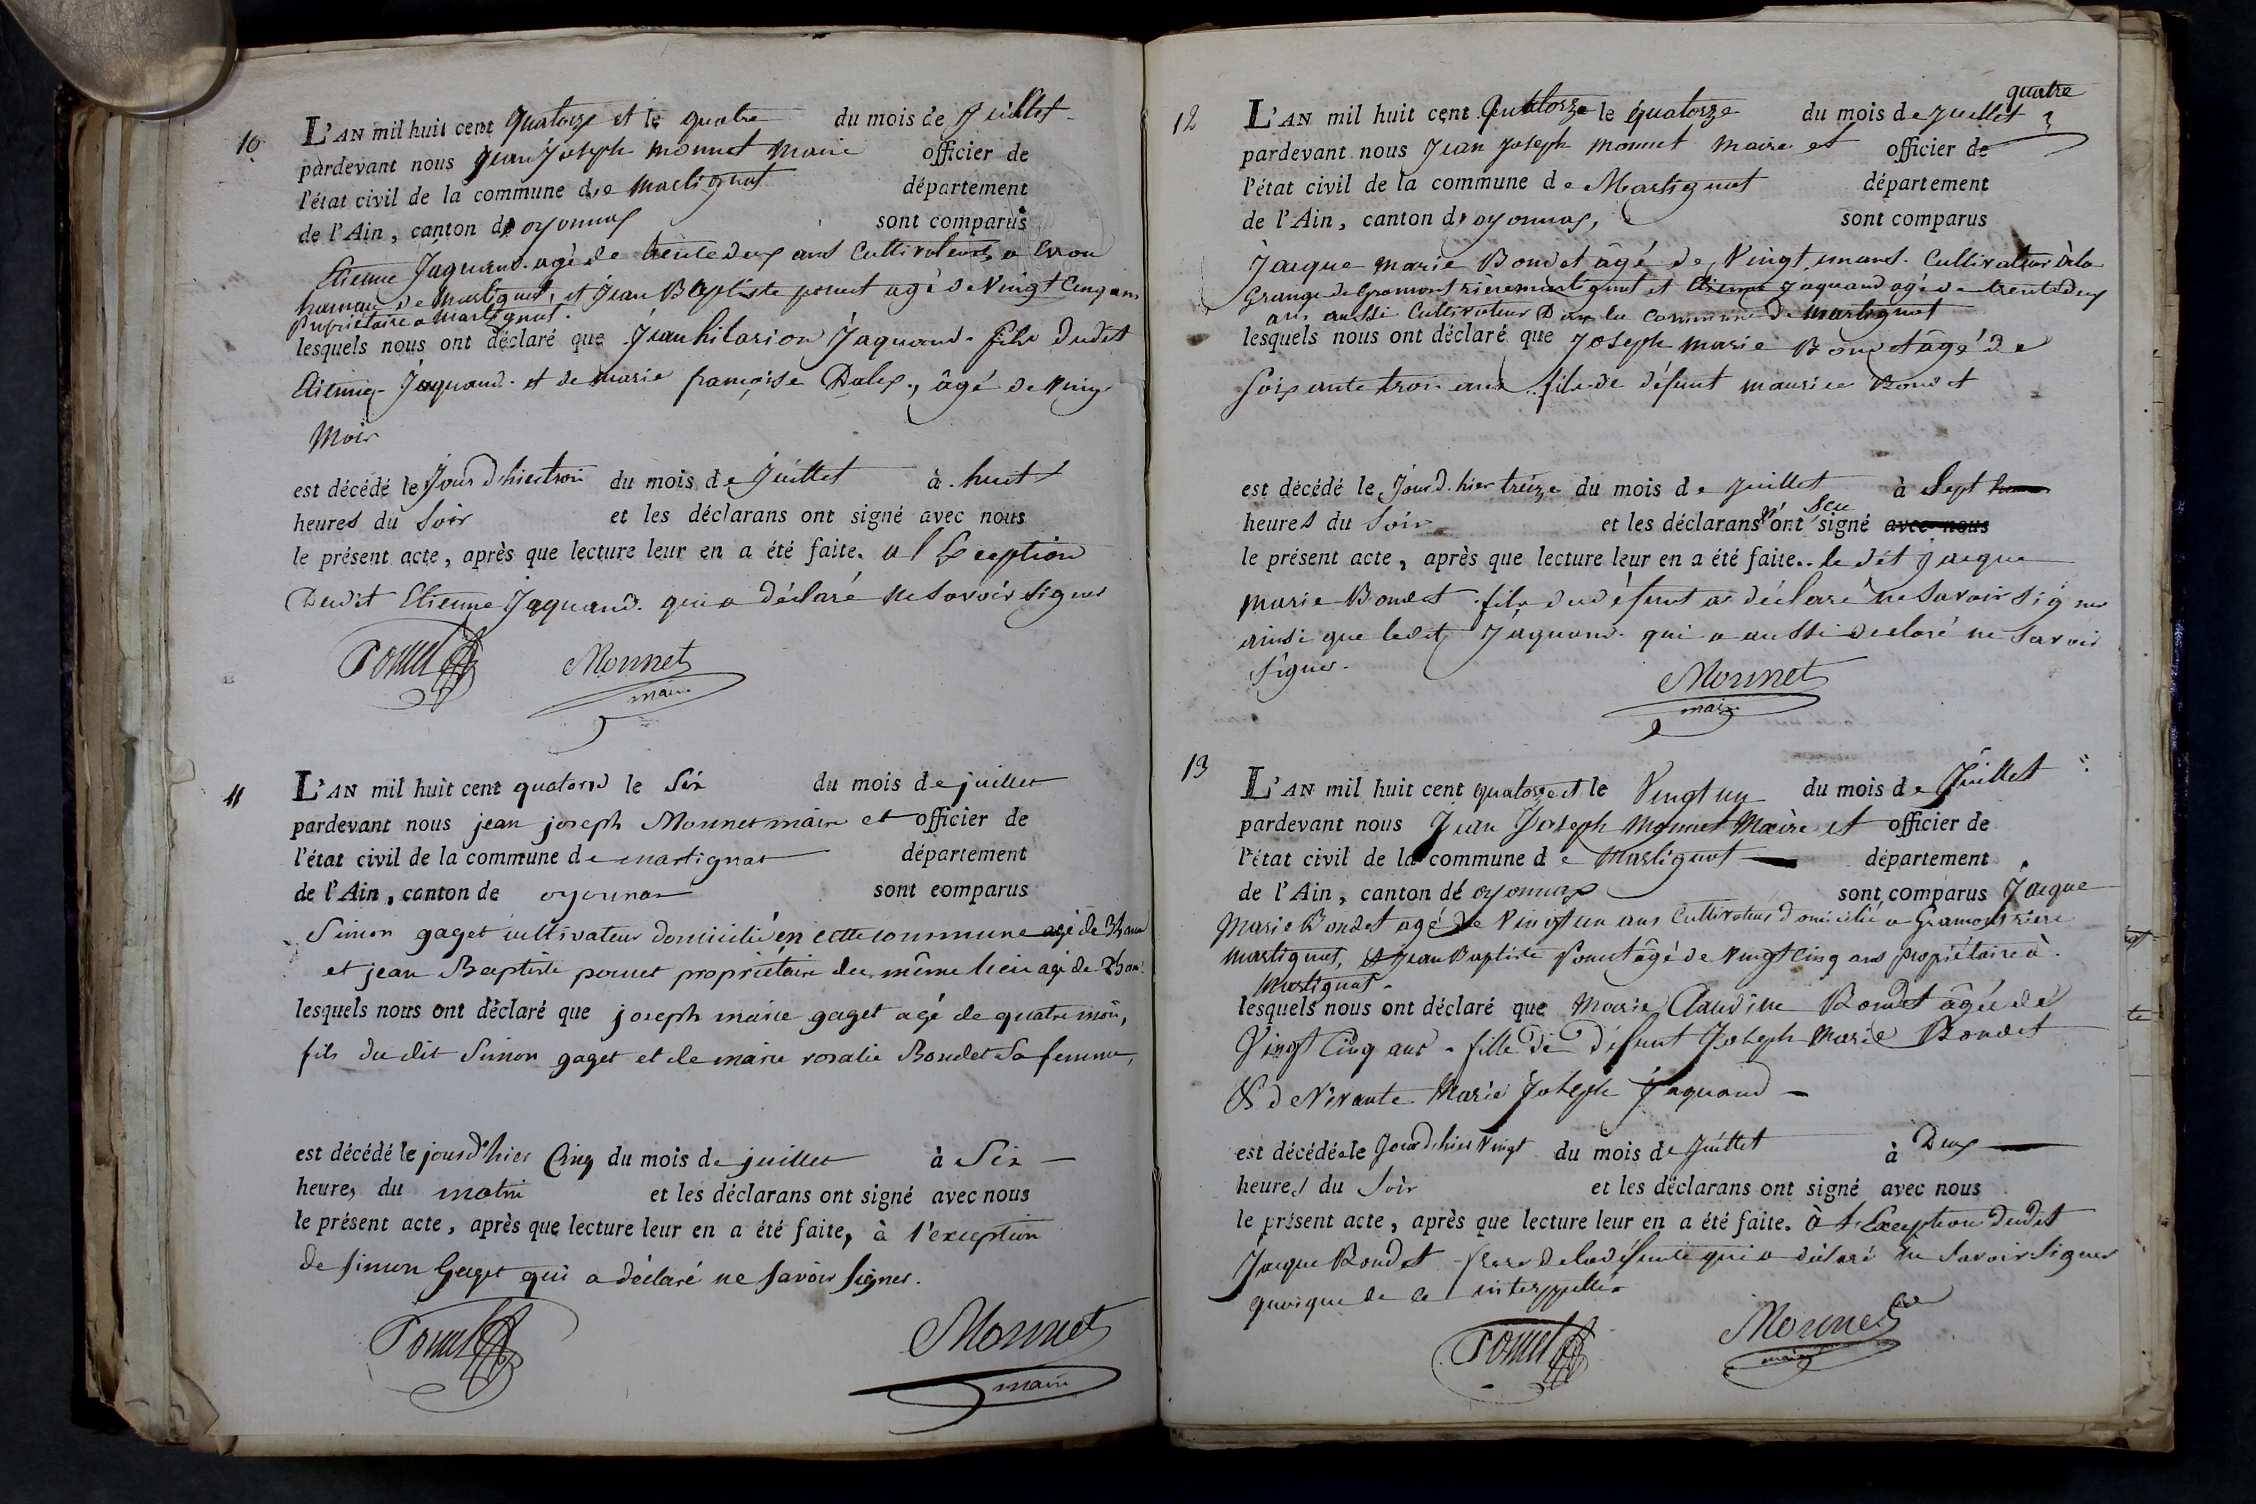 10
L'AN mil huit cent quatorze et le quatre du mois de juillet
pardevant nous Jean Joseph Monnet Maire officier de
l'état civil de la commune de Martignat département
de l'Ain, canton de oyonnax sont comparus
Etienne Jaquand agé de trente deux ans Cultivateur, a Evron
hameau de Martignat, et Jean Baptiste ponet agé de Vingt Cinq ans
propriétaire a Martignat.
lesquels nous ont déclaré que Jean hilarion Jaquand fils dudit
Etienne Jaquand et de marie françoise Dalex, âgé de Vingt
Mois
est décédé le Jour d'hier trois du mois de Juillet à huit
heures du Soir et les déclarans ont signé avec nous
le présent acte, après que lecture leur en a été faite. a l'Exception
Dudit Etienne Jaquand qui a déclaré ne Savoir signer
Ponet Monnet
maire
11
L'AN mil huit cent quatorze le Six du mois de juillet
pardevant nous jean joseph Monnet maire et officier de
l'état civil de la commune de martignat département
de l'Ain, canton de oyonnax sont comparus
Simon gaget cultivateur domicilié en cette commune agé de ans
et jean Baptiste ponet propriétaire du même lieu agé de 25 ans
lesquels nous ont déclaré que joseph marie gaget agé de quatre mois,
fils du dit Simon gaget et de marie rosalie Bondet Sa femme,
est décédé le jourd'hier Cinq du mois de juillet à Six
heures du matin et les déclarans ont signé avec nous
le présent acte, après que lecture leur en a été faite, à l'exception
de simon Gaget qui a déclaré ne savoir signer.
Ponet Monnet
maire
12
quatre
L'AN mil huit cent Quatorze le quatorze du mois de juillet
pardevant nous Jean Joseph Monnet Maire et officier de
l'état civil de la commune de Martignat département
de l'Ain, canton de oyonnax, sont comparus
Jacque Marie Bondet âgé de Vingt un ans Cultivateur à la
Grange de Gramont rière martignat et Etienne Jaquand agé de trente deux
ans aussi Cultivateur Dans la Commune de Martignat
lesquels nous ont déclaré que Joseph Marie Bondet âgé de
Soixante trois ans fils de défunt Maurice Bondet
est décédé le Jourd'hier treize du mois de Juillet à Sept
heures du Soir et les déclarans n'ont Seu signé avec nous
le présent acte, après que lecture leur en a été faite. le dit Jacque
Marie Bondet fils du défunt a déclaré ne Savoir signer
ainsi que ledit Jaquand qui a aussi déclaré ne Savoir
signer.
Monnet
maire
13
L'AN mil huit cent quatorze et le Vingt un du mois de Juillet
pardevant nous Jean Joseph Monnet Maire et officier de
l'état civil de la commune de Martignat département
de l'Ain, canton de oyonnax sont comparus Jacque
Marie Bondet agé de Vingt un ans Cultivateur domicilié a Gramont rière
martignat, et Jean Baptiste Ponet âgé de Vingt Cinq ans propriétaire à
Martignat.
lesquels nous ont déclaré que Marie Claudine Bondet âgée de
Vingt Cinq ans fille de défunt Joseph Marie Bondet
& de Vivante Marie Joseph Jaquand
est décédée le Jourd'hier Vingt du mois de Juillet à Deux
heures du Soir et les déclarans ont signé avec nous
le présent acte, après que lecture leur en a été faite. à l'Exception Dudit
Jacque Bondet frere de la défunte qui a déclaré ne Savoir Signer
quoique de ce interppellé
Ponet Monnet
maire